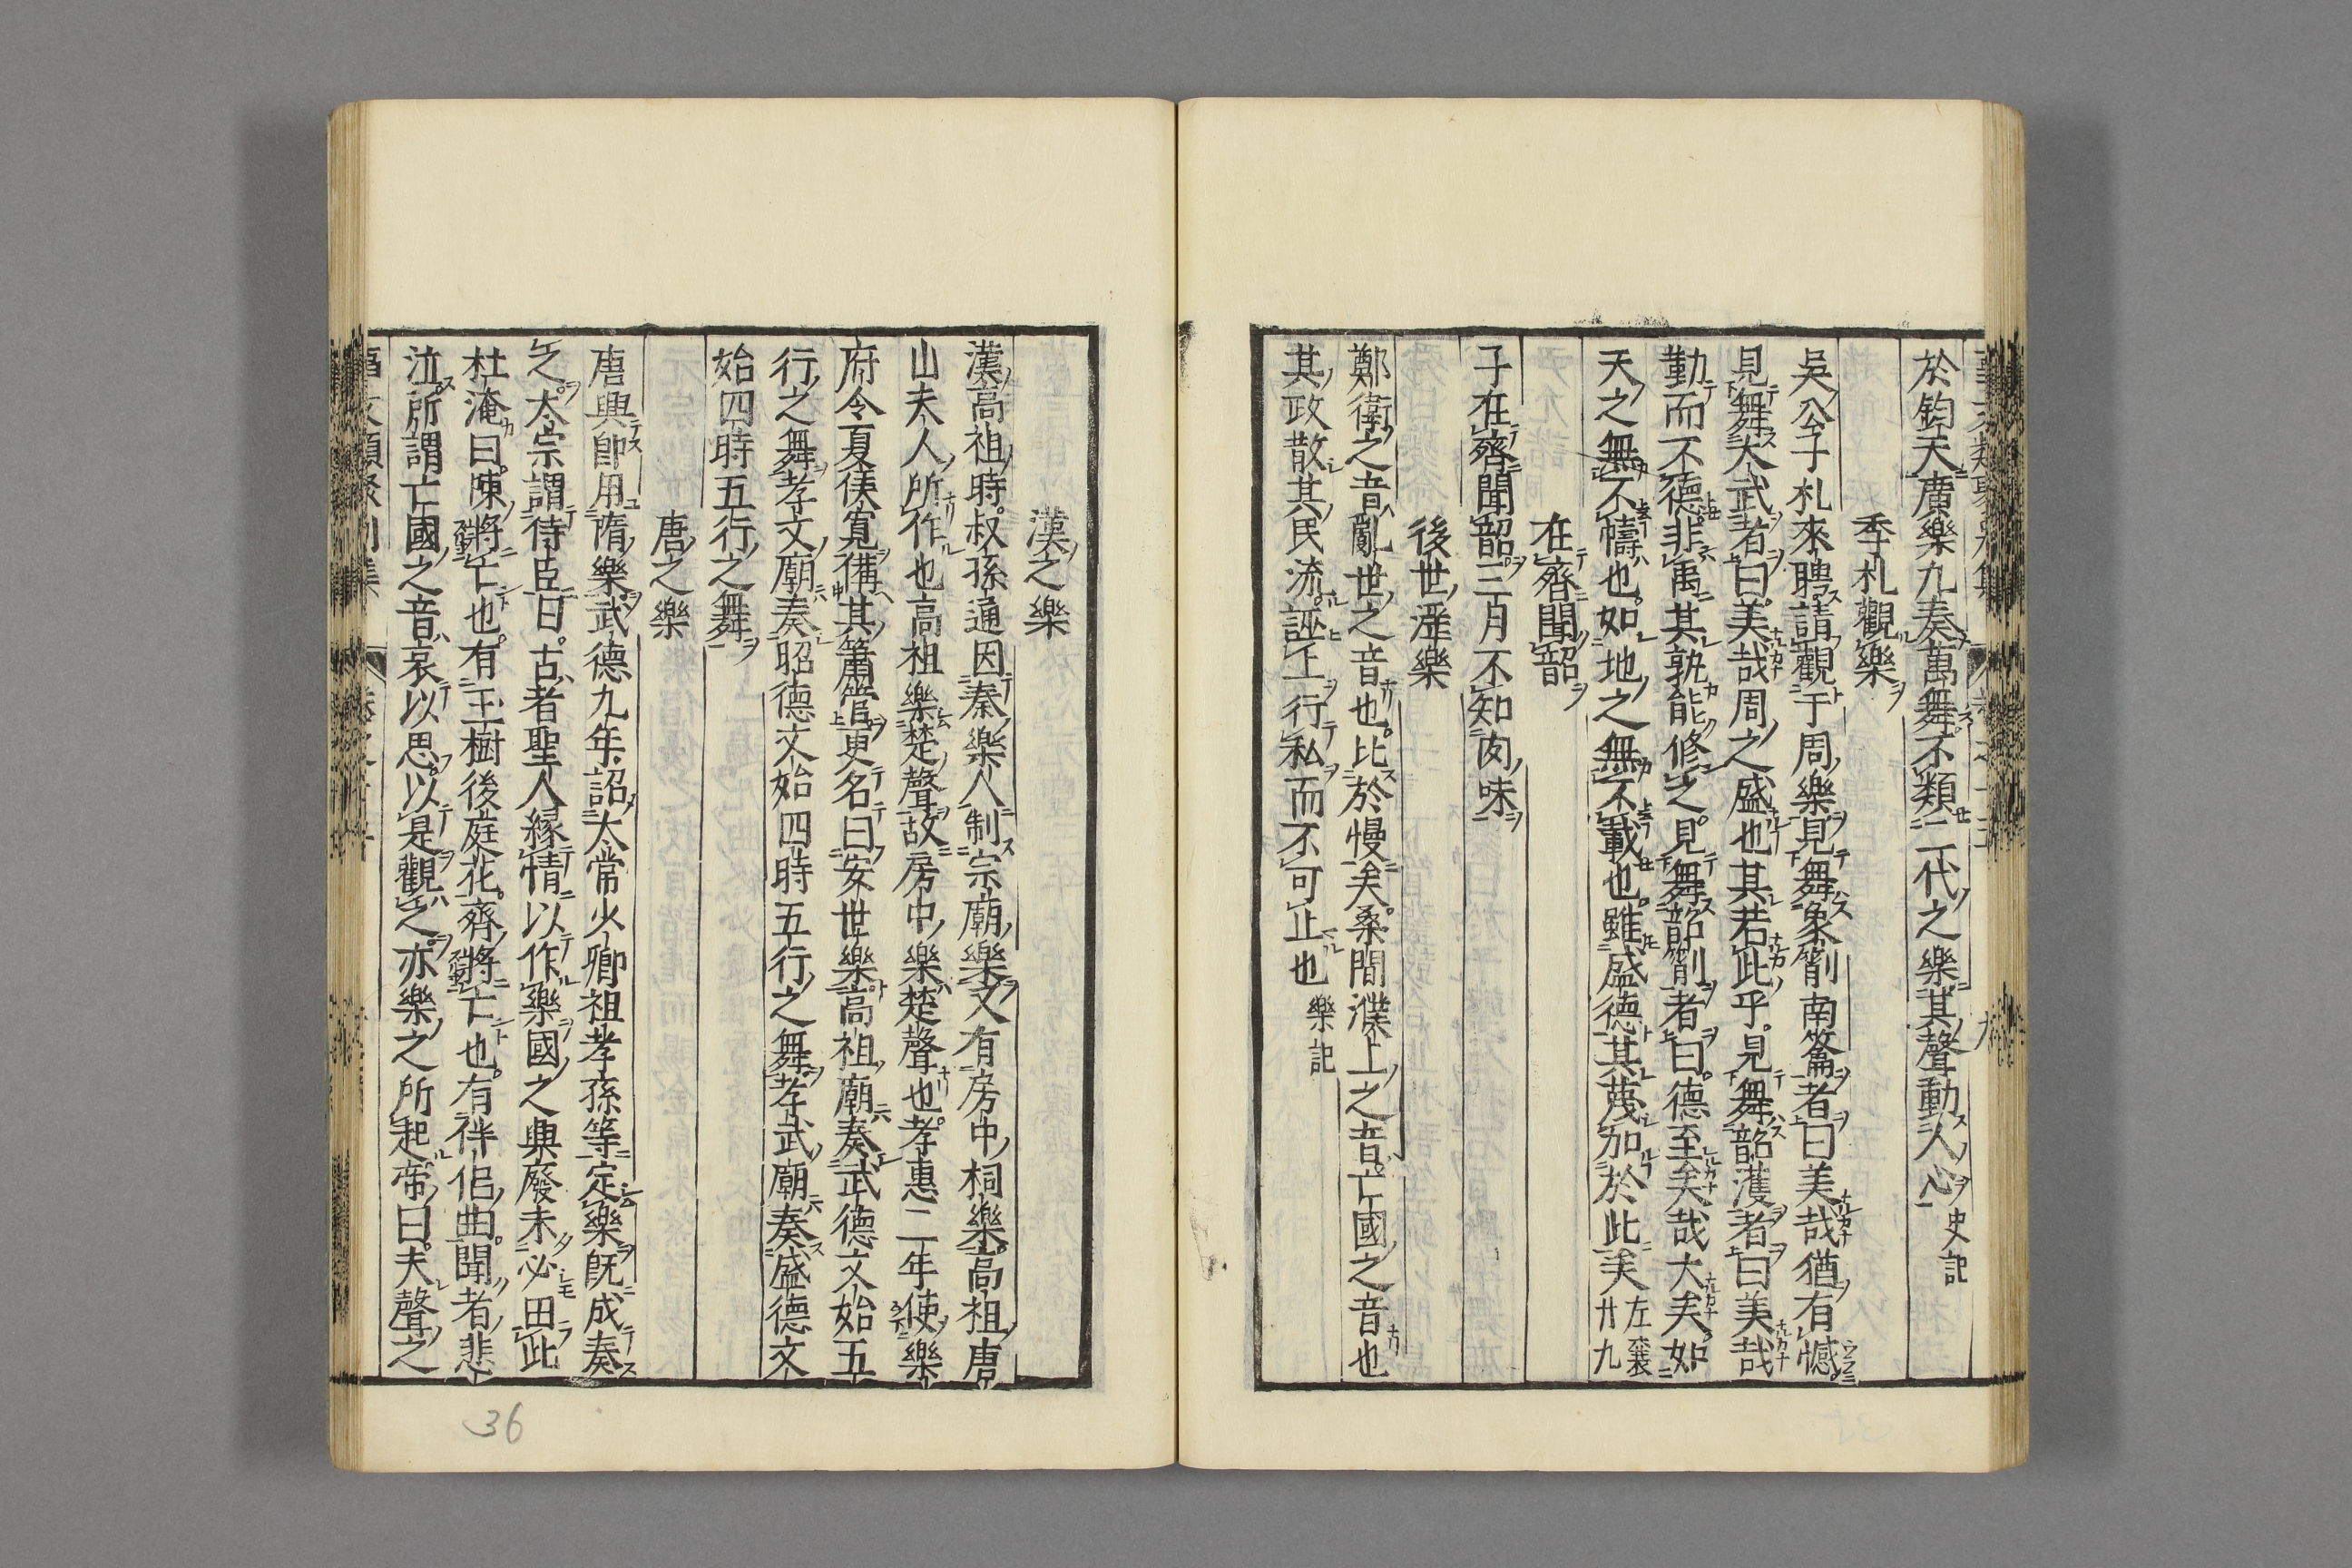 於鈞天廣樂九奏萬舞不類二代之樂其聲動人心史記
季札觀樂
吳公子札來聘請觀于周樂見舞象箾南籥者曰美哉猶有憾
見舞大武者曰美哉周之盛也其若此乎見舞韶濩者曰美哉
勤而不德非禹其孰能修之見舞韶箾者曰德至矣哉大矣如
天之無不幬也如地之無不載也雖盛德其蔑加於此矣左襄廿九
在齊聞韶
子在齊聞韶三月不知肉味
後世淫樂
鄭衛之音亂世之音也比於慢矣桑間濮上之音亡國之音也
其政散其民流誣上行私而不可止也樂記
漢之樂
漢高祖時叔孫通因秦樂人制宗廟樂又有房中祠樂高祖唐
山夫人所作也高祖樂楚聲故房中樂楚聲也孝惠二年使樂
府令夏侯寬備其簫管更名曰安世樂高祖廟奏武德文始五
行之舞孝文廟奏昭德文始四時五行之舞孝武廟奏盛德文
始四時五行之舞
唐之樂
唐興卽用隋樂武德九年詔太常少卿祖孝孫等定樂既成奏
之太宗謂侍臣曰古者聖人緣情以作樂國之興廢未必由此
杜淹曰陳將亡也有玉樹後庭花齊將亡也有伴侶曲聞者悲
泣所謂亡國之音哀以思以是觀之亦樂之所起帝曰夫聲之